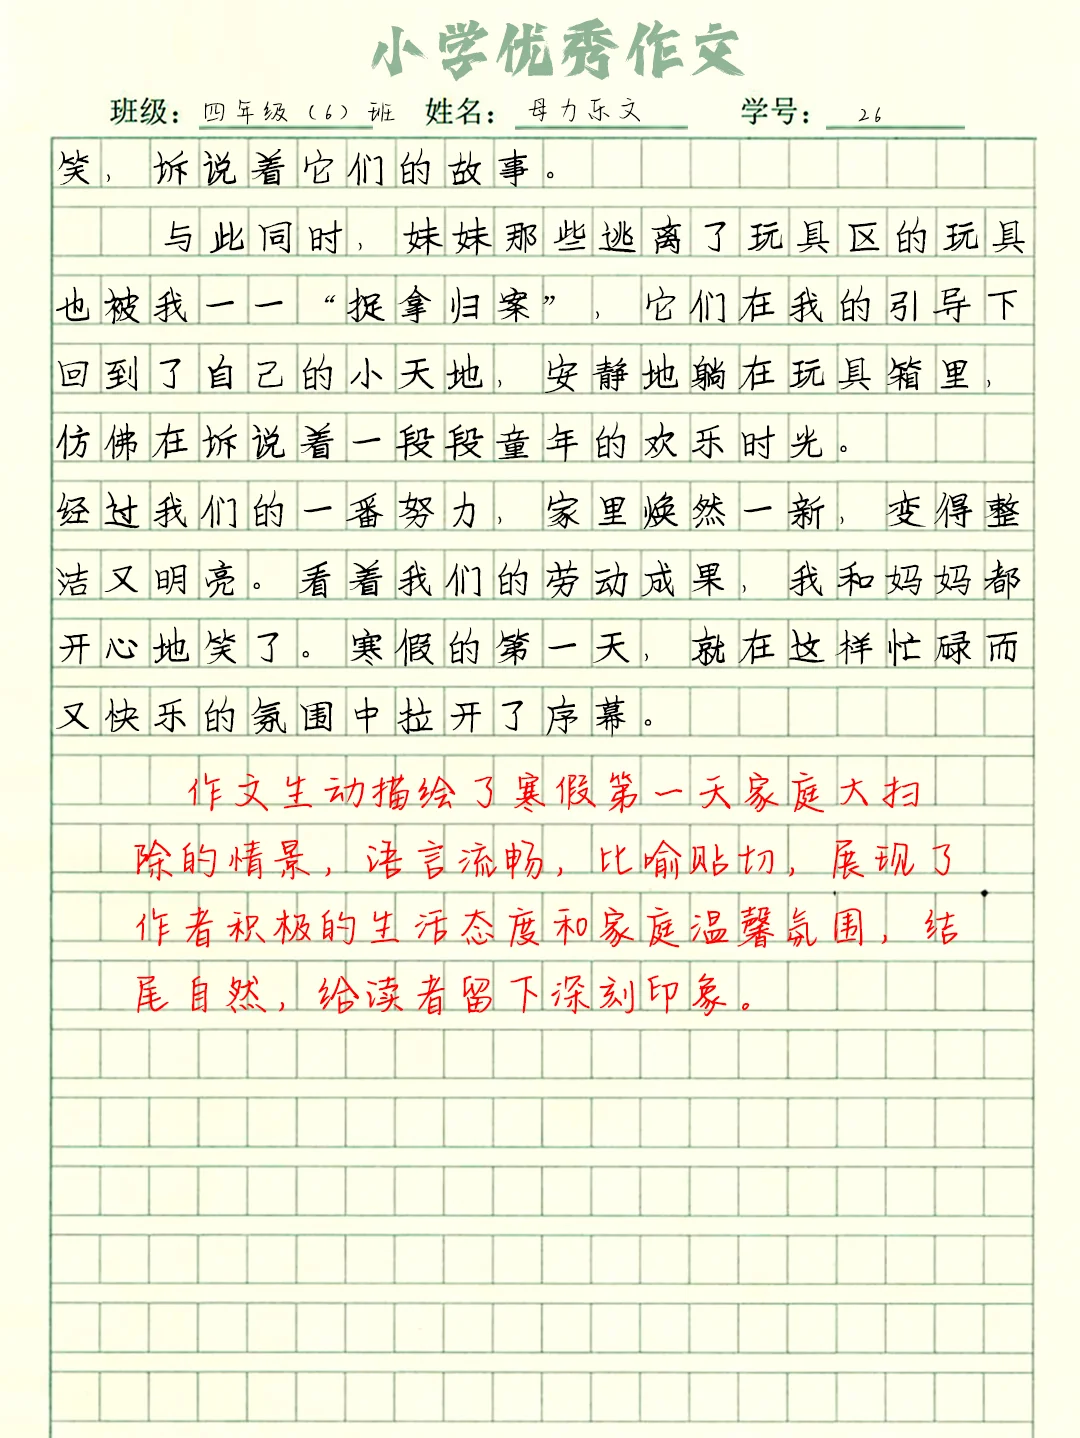 小学优秀作文
班级：四年级（6）班 姓名：母力乐文 学号：26
笑，诉说着它们的故事。
与此同时，妹妹那些逃离了玩具区的玩具
也被我一一“捉拿归案”，它们在我的引导下
回到了自己的小天地，安静地躺在玩具箱里，
仿佛在诉说着一段段童年的欢乐时光。
经过我们的一番努力，家里焕然一新，变得整
洁又明亮。看着我们的劳动成果，我和妈妈都
开心地笑了。寒假的第一天，就在这样忙碌而
又快乐的氛围中拉开了序幕。
作文生动描绘了寒假第一天家庭大扫
除的情景，语言流畅，比喻贴切，展现了
作者积极的生活态度和家庭温馨氛围，结
尾自然，给读者留下深刻印象。